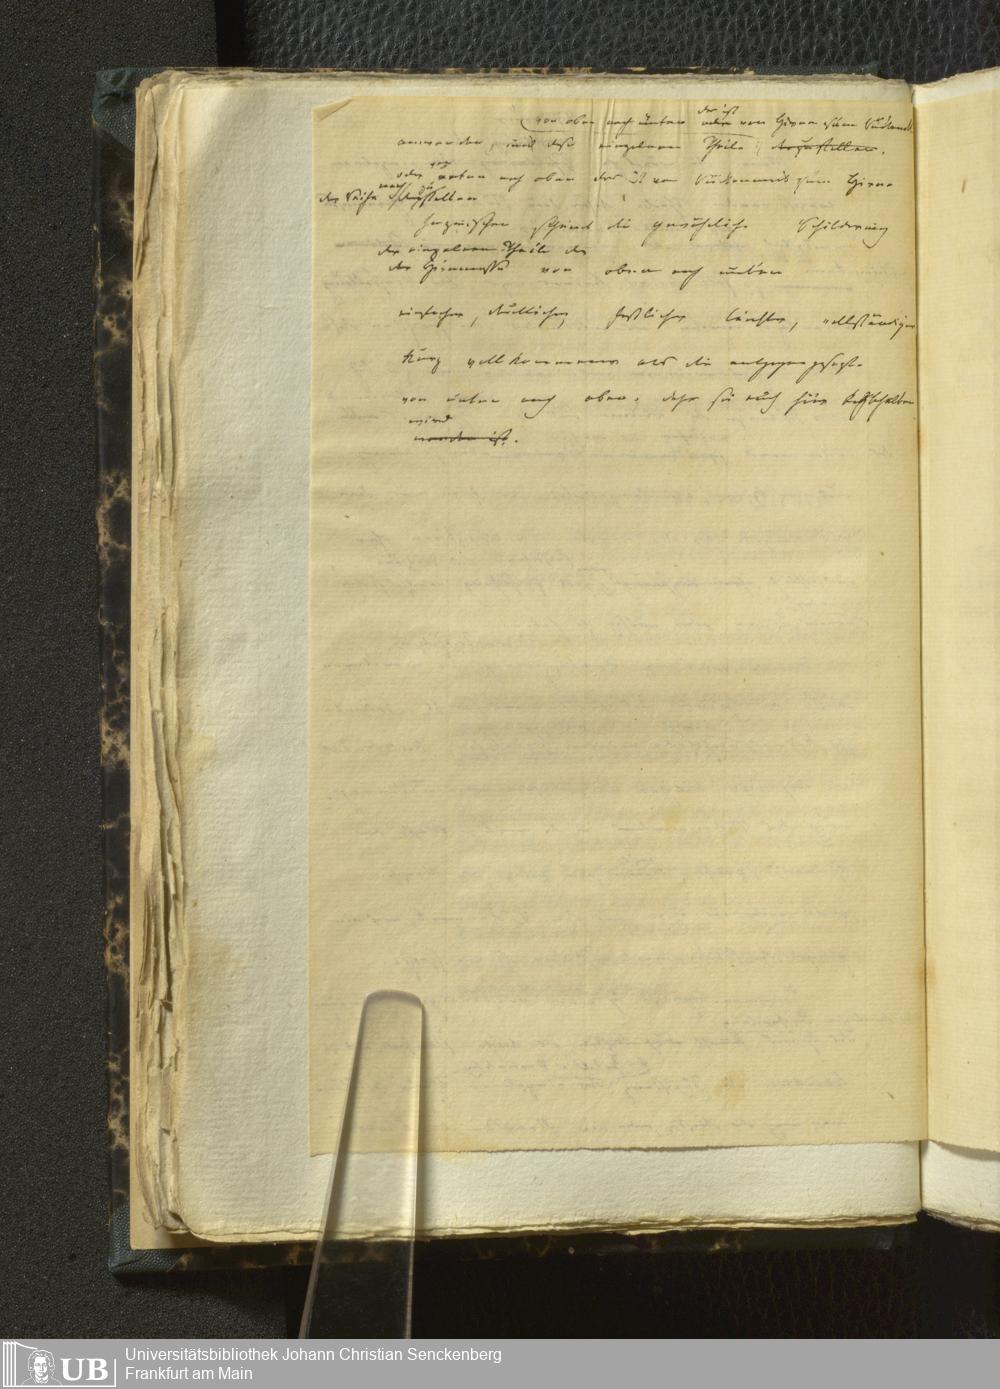 das ist
(von oben nach unten oder vom Hirn zum Rückenmark
anwenden, und diese einzelnen Theile darzustellen.
oder von unten nach oben das ist vom Rückenmark zum Hirne
der Reihe nach darzustellen
scheint die Schilderung
der einzelnen Theile des
der Hirnmasse von oben nach unten
einfacher, deutlicher, faßlicher, leichter, vollständiger
kurz vollkommener als die entgegengesetzte
von unten nach oben, daher sie auch hier beybehalten
wird
worden ist.
UB
Universitätsbibliothek Johann Christian Senckenberg
Frankfurt am Main